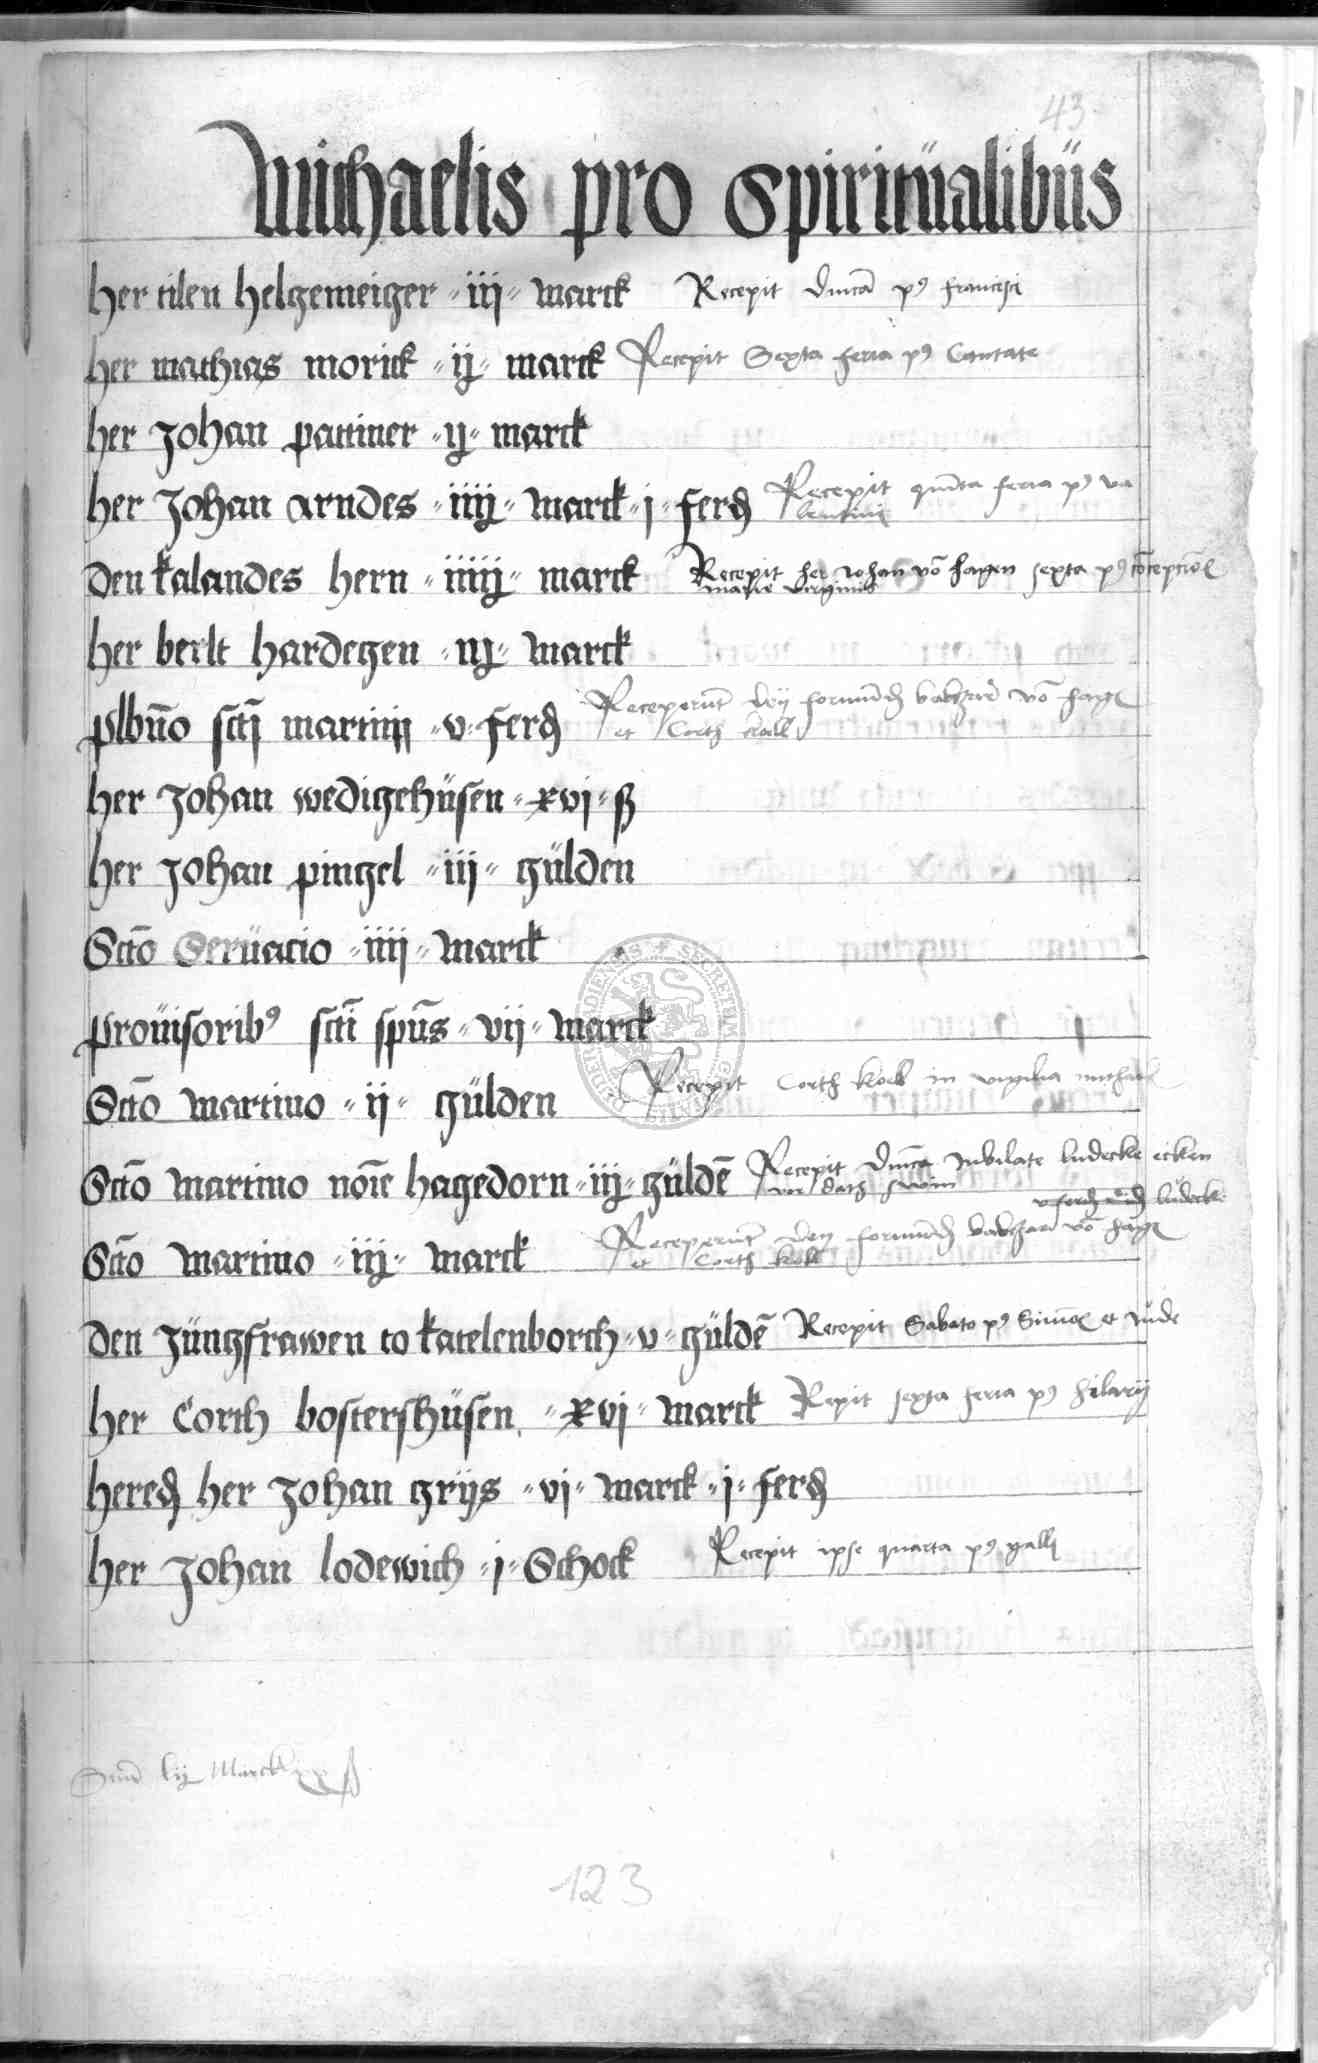 43
Michaelis pro Spiritüalibüs
her tilen helgemeiger · iij · marck Recepit dnīca p9 francisci
her mathias morick · ij · marck Recepit Sexta feria p9 Cantate
her Johan pattiner · ij · marck
her Johan arndes · iiij · marck · j · ferd Recepit qūīta feria p9 va
lentini
den kalandes hern · iiiij · marck Recepit her Johan vō hagen sexta p9 cōcepciō
marie virginis
her berlt hardegen · iij · marck
plbn̄o sctj martinj · v · ferd Receperūt dey formūd vō hag
et Corth kock
her Johan wedigehüsen · xvj · ß
her Johan pingel · iij · gülden
Sctō Serüacio · iiij · marck
proüisorib9 sctī spūs · vij · marck
Sctō martino · ij · gülden Recepit Corth kock in vigilia michael
Sctō martino noīe hagedorn · iij · güldē Recepit dnīca Jubilate ludecke ecken
ludeck
Sctō martino · iij · marck Receperūt dey formūd vō hag
et Corth kock
den Jüngfrawen to katelenborch · v · güldē Recepit Sabato p9 Simō et Jude
her Corth bostershüsen · xvj · marck Repit sexta feria p9 hilarij
hered her Johan grijs · vj · marck · j · ferd
her Johan lodewich · j · Schock Recepit ipse quarta p9 galli
lij Marck
123